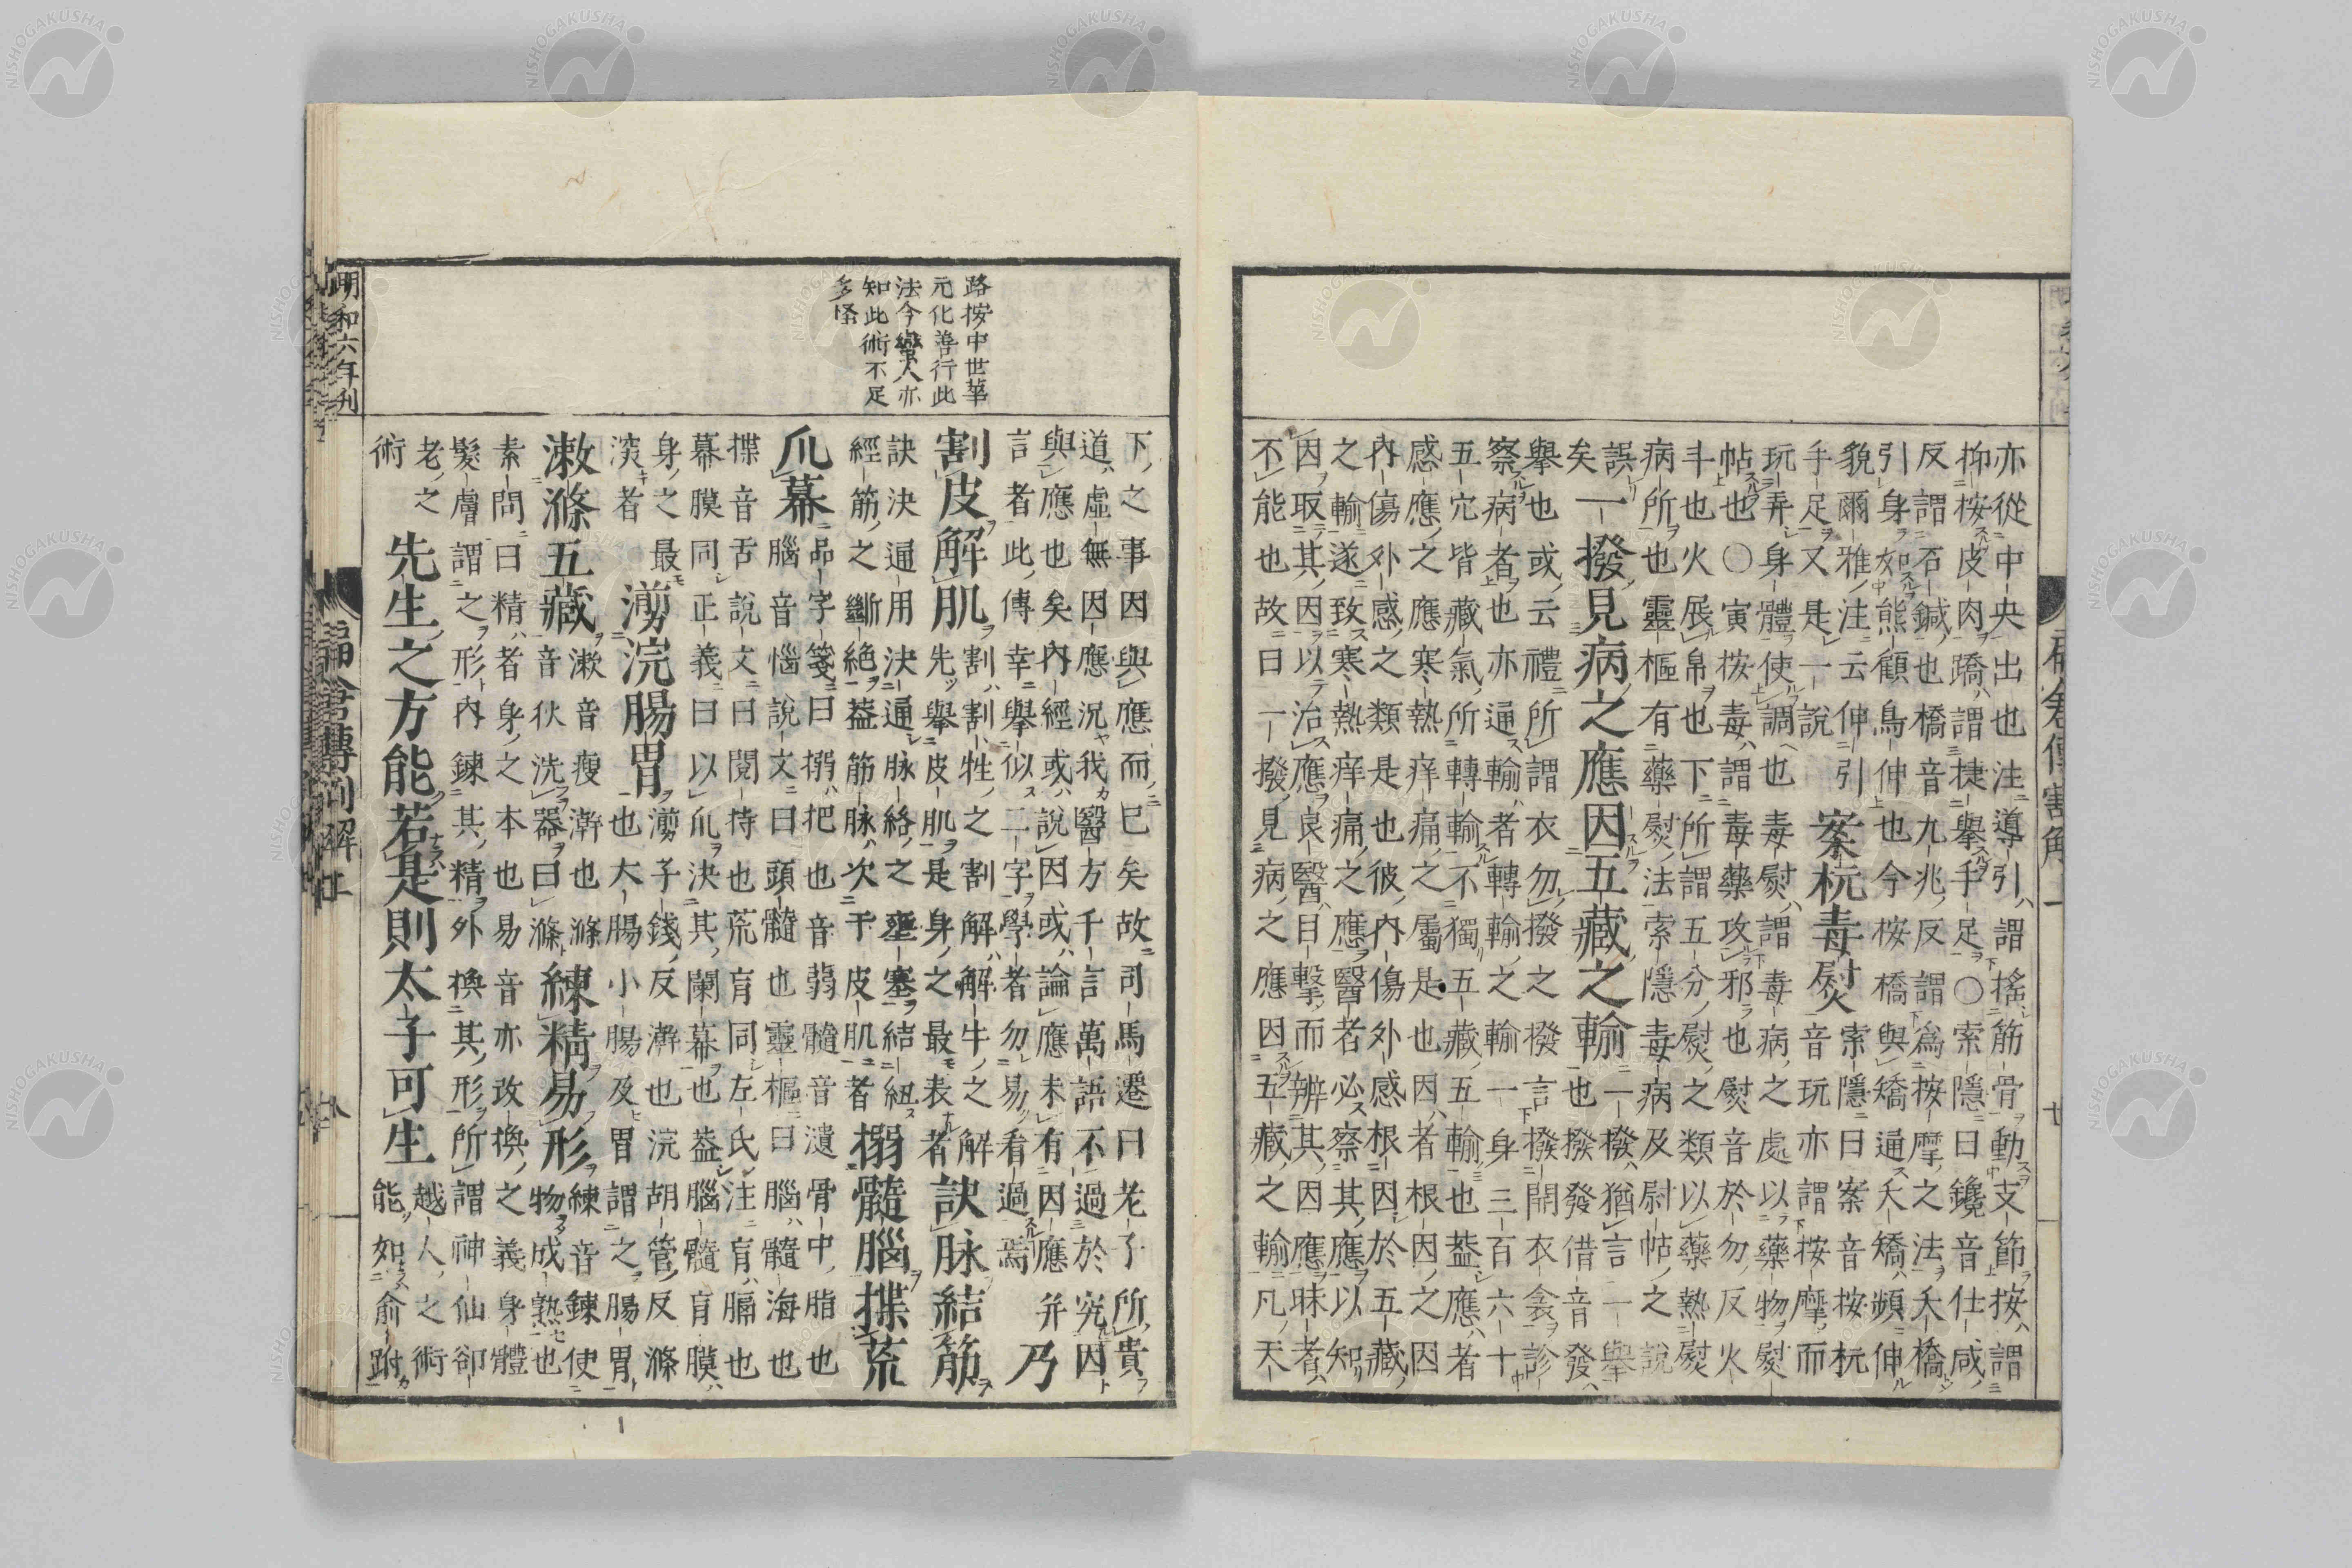 亦從中央出也注導引謂搖筋骨動支節按謂
抑按皮肉蹻謂捷擧手足〇索隱曰鑱音仕咸
反謂石鍼也橋音九兆反謂爲按摩之法夭橋
引身如熊顧鳥伸也今按橋與矯通夭矯頻伸
貌爾雅注云伸引
手足又是一說
案杬毒熨
索隱曰案音按杬
音玩亦謂按摩而
玩弄身體使調也毒熨謂毒病之處以藥物熨
帖也〇寅按毒謂毒藥攻邪也熨音於勿反火
斗也火展帛也下所謂五分熨之類以藥熱熨
病所也靈樞有藥熨法索隱毒病及尉帖之說
誤
矣
一撥見病之應因五藏之輸
一撥猶言一擧
也撥發借音發
擧也或云禮所謂衣勿撥之撥言撥開衣衾診
察病者也亦通輸者轉輸之輸一身三百六十
五穴皆藏氣所轉輸不獨五藏五輸也葢應者
感應之應寒熱痒痛之屬是也因者根因之因
內傷外感之類是也彼內傷外感根因於五藏
之輸遂致寒熱痒痛之應醫者必察其應以知
因取其因以治應良醫目擊而辨其因應昧者
不能也故曰一撥見病之應因五藏之輸凡天
路按中世華
元化善行此
法今蠻人亦
知此術不足
多怪
下之事因與應而已矣故司馬遷曰老子所貴
道虛無因應況我醫方千言萬語不過於究因
與應也矣內經或說因或論應未有因應并
言者此傳幸擧似二字學者勿易看過焉
乃
割皮解肌
割割牲之割解解牛之解
先擧皮肌是身之最表者
訣脉結筋
訣決通用決通脉絡之壅塞結紐
經筋之斷絕葢筋脉次于皮肌者
搦髓腦揲荒
爪幕
品字箋曰搦把也音弱髓音瀢骨中脂也
腦音惱說文曰頭髓也靈樞曰腦髓海也
揲音舌說文曰閱持也荒肓同左氏注肓膈也
幕膜同正義曰以爪決其闌幕也葢腦髓肓膜
身之最
湥者
湔浣腸胃
湔子錢反澣也浣胡管反滌
也大腸小腸及胃謂之腸胃
漱滌五藏
漱音瘦澣也滌
音狄洗器曰滌
練精易形
練音鍊使
物成熟也
素問曰精者身之本也易音亦改換之義身體
髮膚謂之形內鍊其精外換其形所謂神仙卻
老之
術
先生之方能若是則太子可生
越人之術
能如俞跗
明和六年刊